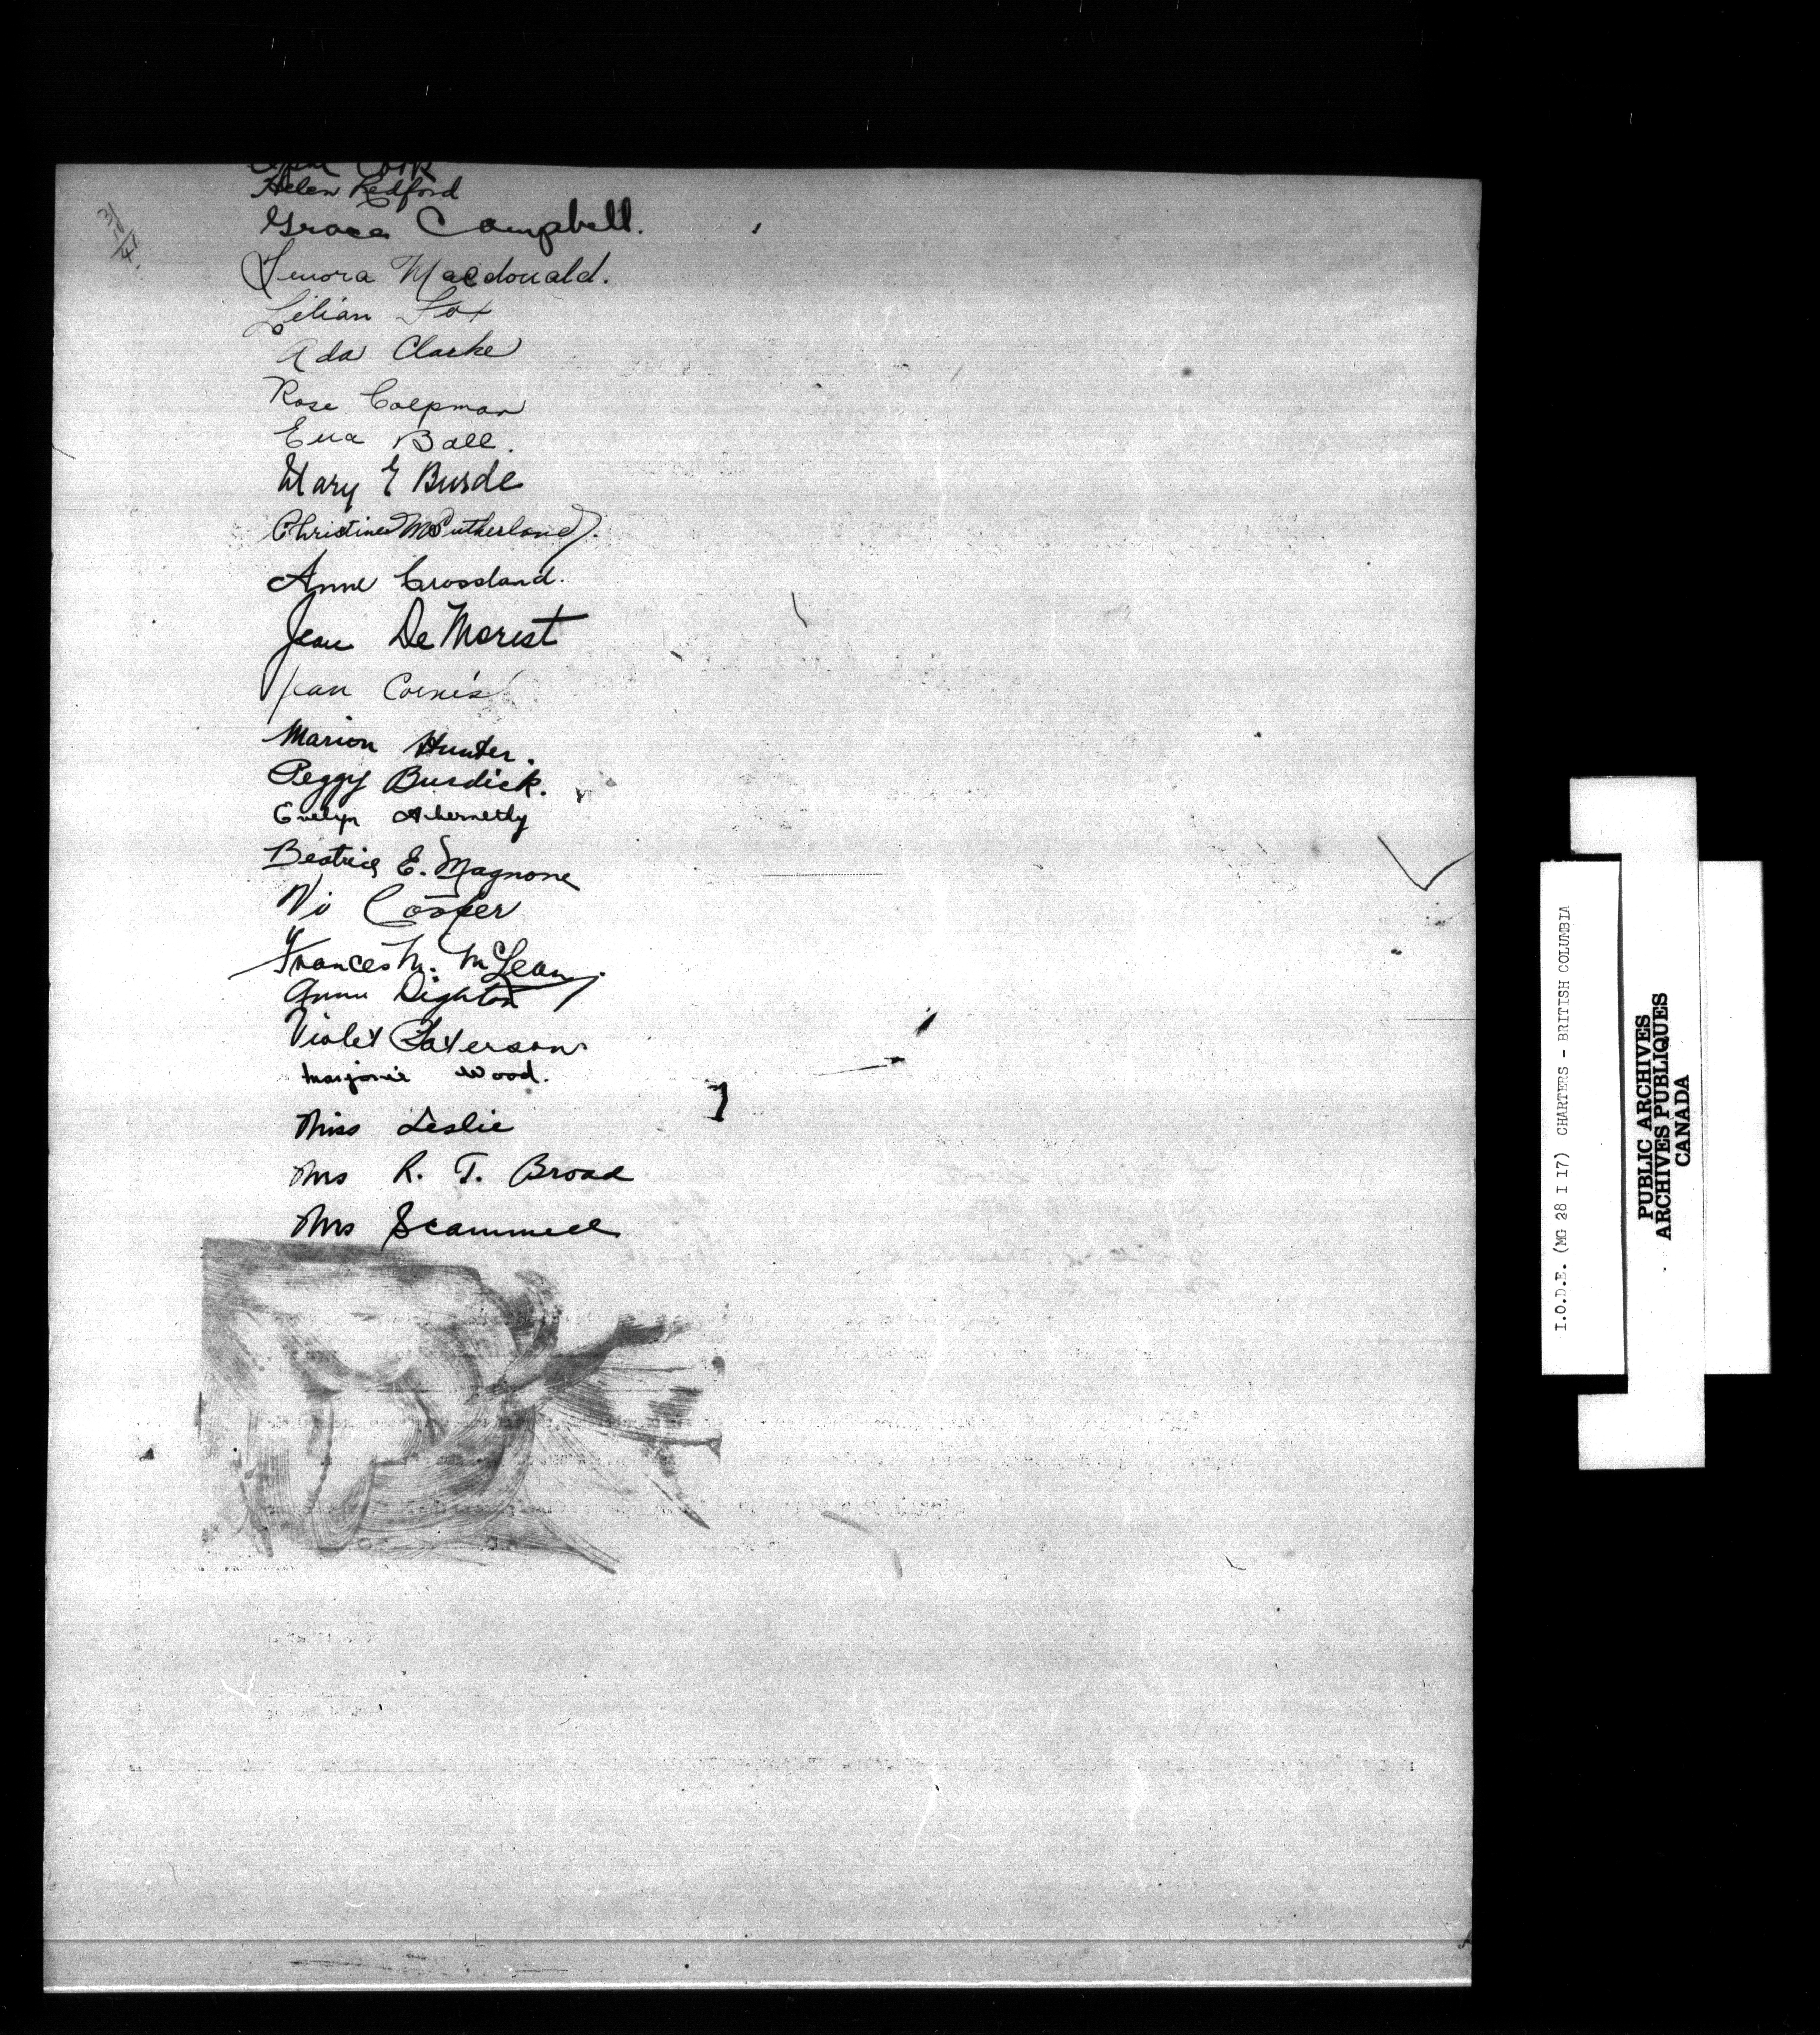 Helen Redford
Grace Campbell.
Lenora Macdonald.
Lilian Fox
Ada Clarke
Rose
Eva Ball.
Mary E Burde
Christine M Sutherland.
Anne Crossland.
Jean DeMorest
Jean Cornish
Marion Hunter.
Peggy Burdick.
Evelyn Abernethy
Beatrice E. Magnone
Vi Cooper
Frances M. McLean.
Anne Dighton
Violet Paterson
Marjorie Wood.
Miss Leslie
Mrs R. T. Broad
Mrs Scammell
I.O.D.E. (MG 28 I 17) CHARTERS - BRITISH COLUMBIA
PUBLIC ARCHIVES
ARCHIVES PUBLIQUES
CANADA